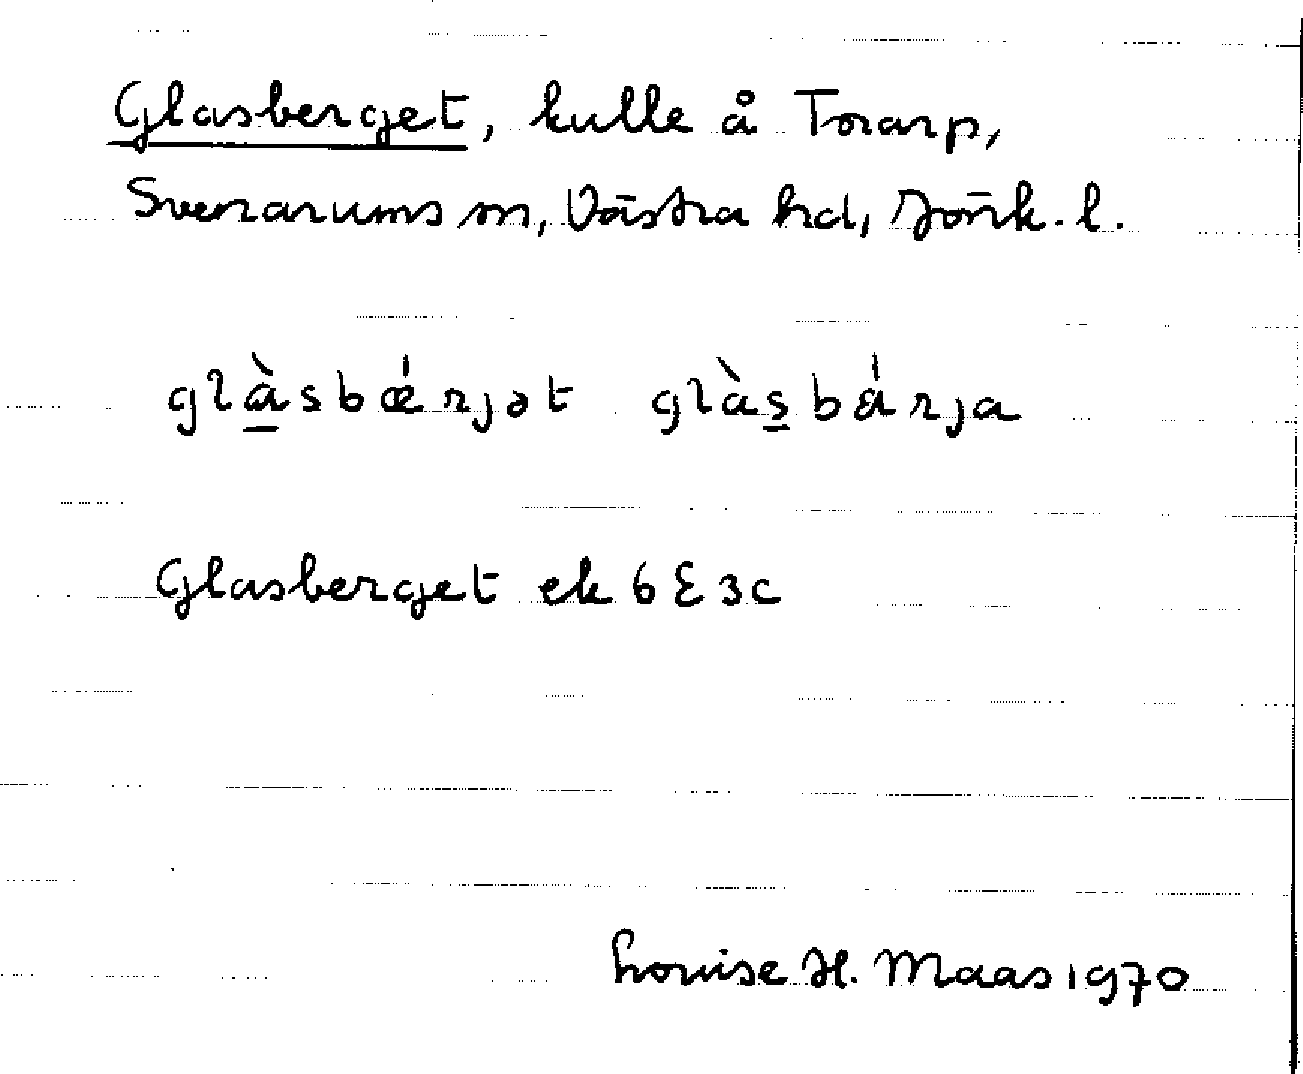 Glasberget, kulle å Torarp,
Svenarums sn, Västra hd, Jönk. l.
glàsbǽrjət glàsbárja
Glasberget ek 6E3c
Louise H. Maas 1970